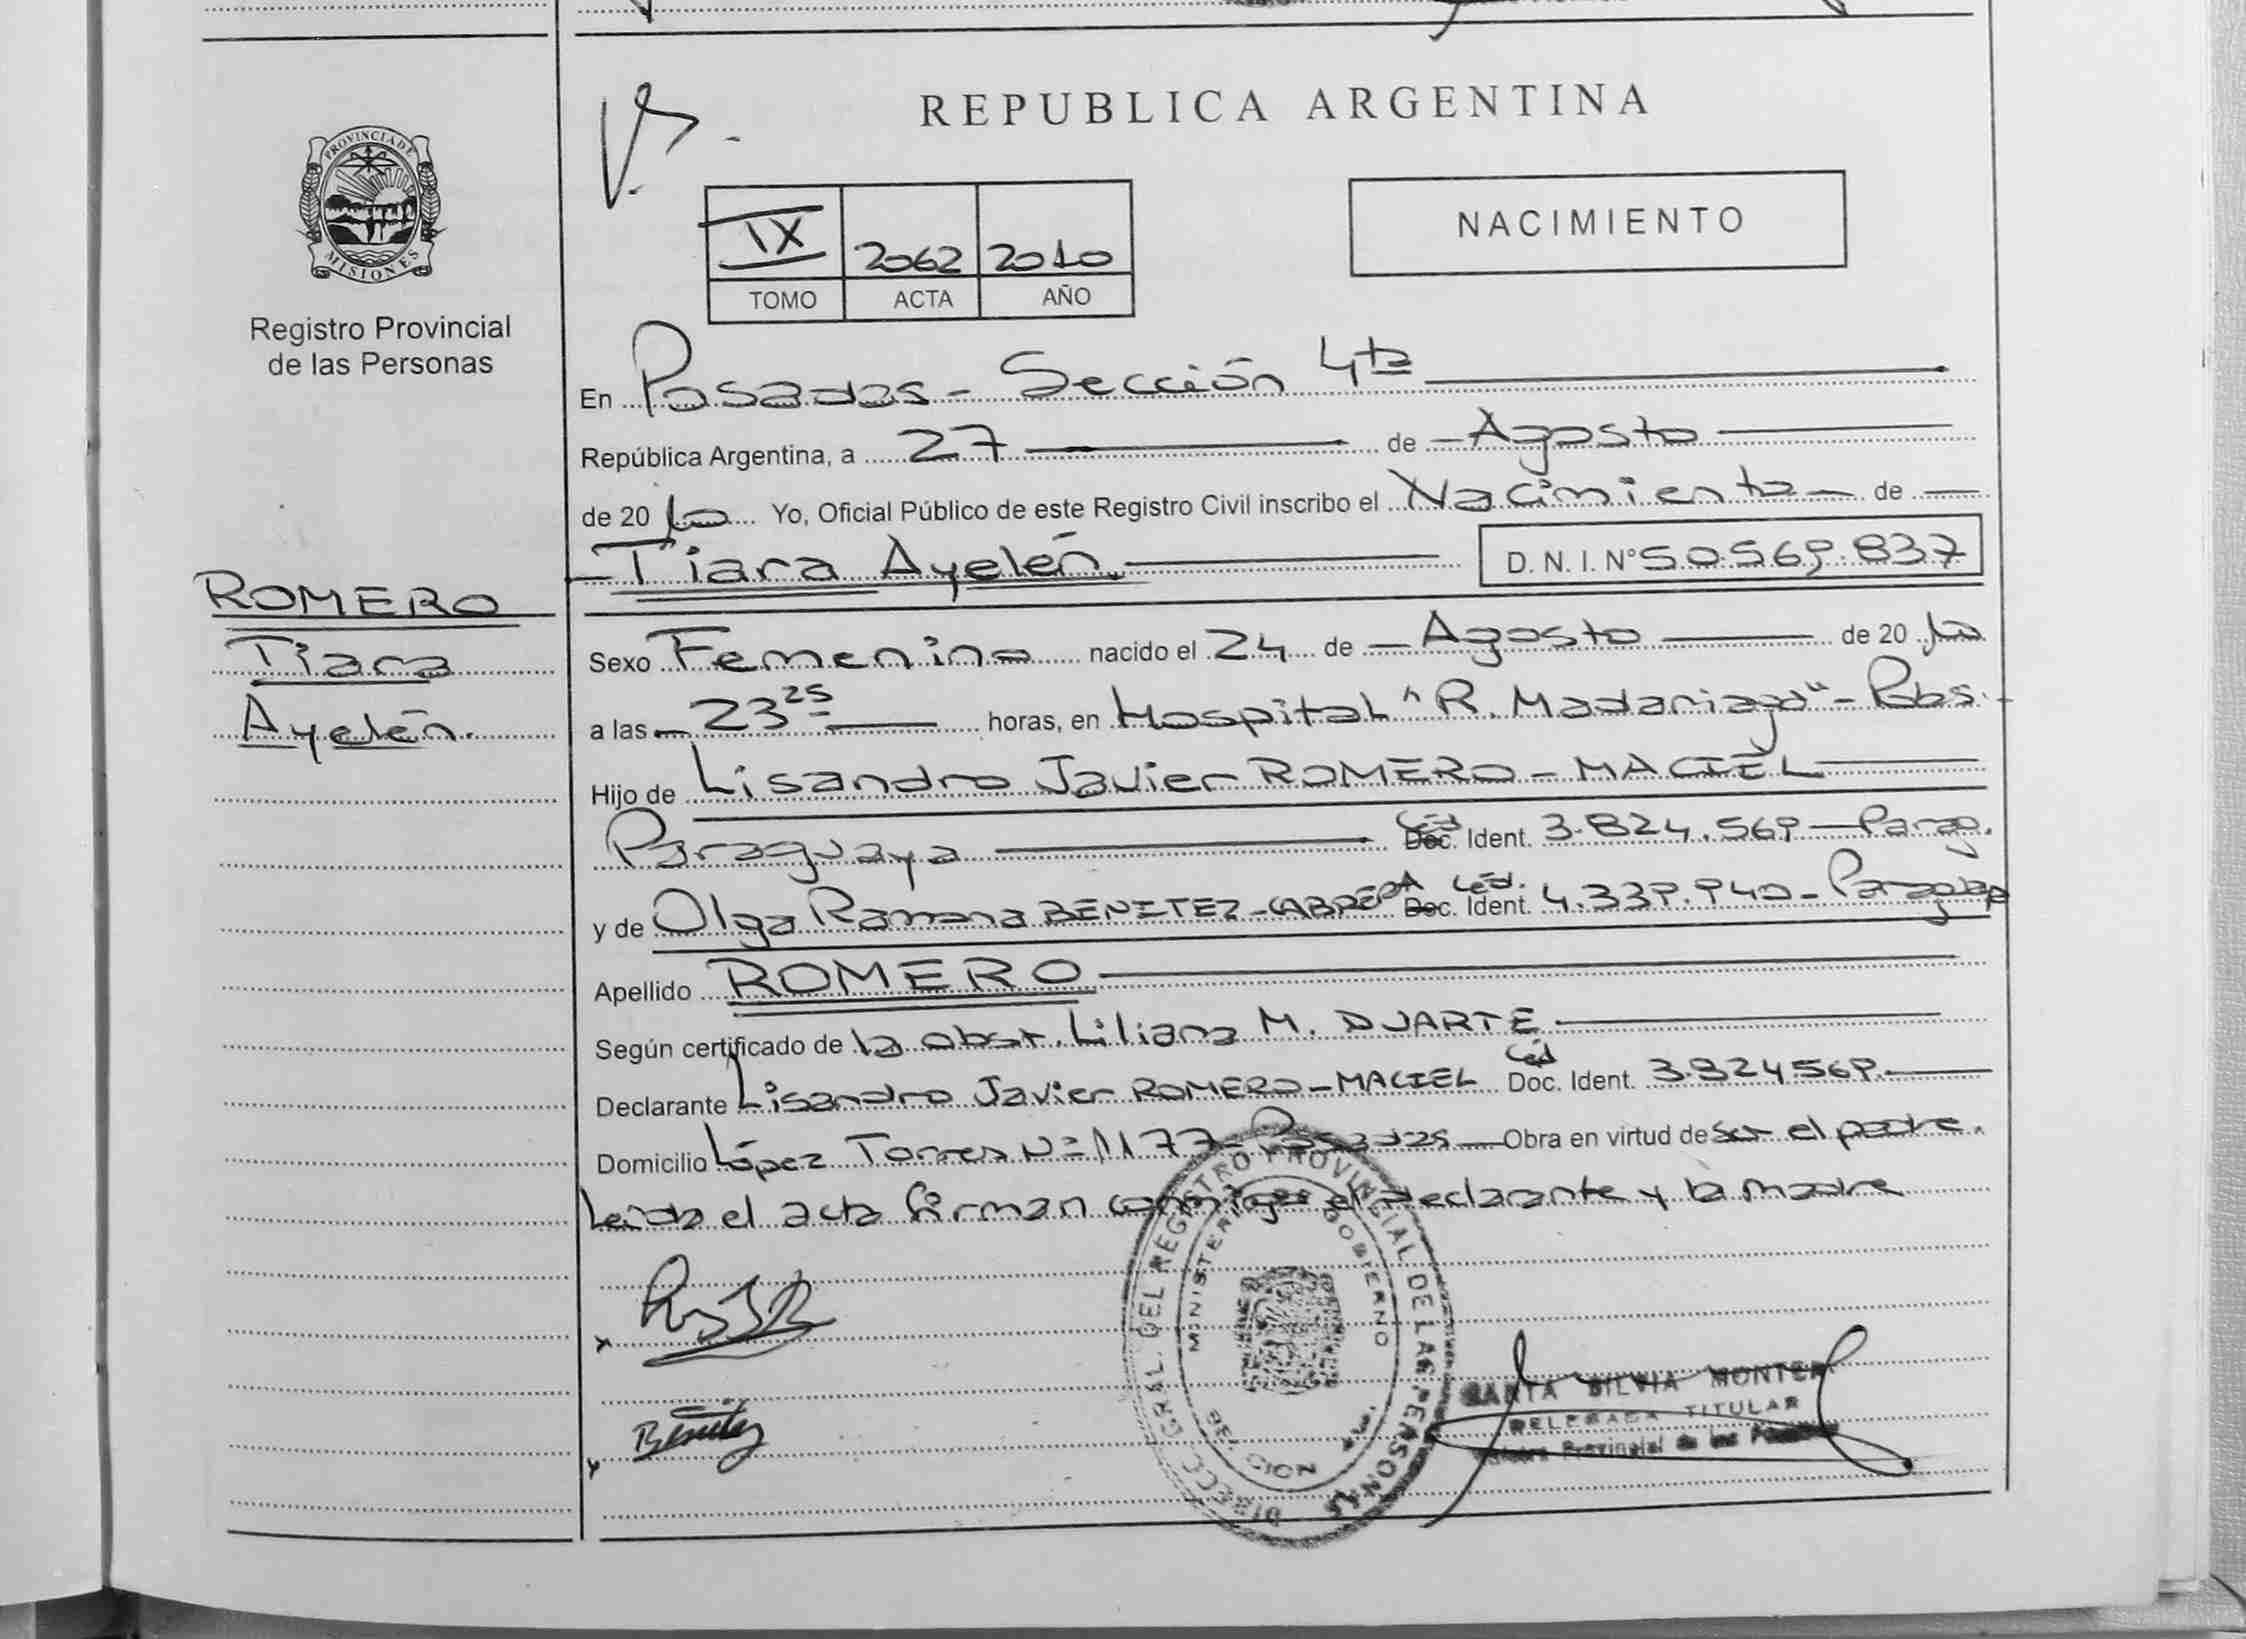 REPUBLICA ARGENTINA
PROVINCIA DE
MISIONES
Registro Provincial
de las Personas
IX 2062 2010
TOMO ACTA AÑO
NACIMIENTO
En Posadas - Sección 4ta
República Argentina, a 27 de Agosto
de 2010 Yo, Oficial Público de este Registro Civil inscribo el Nacimiento de
Tiara Ayelén. D. N. I. N° 50.569.837
ROMERO
Tiara
Ayelén.
Sexo Femenino nacido el 24 de Agosto de 2010
a las 23 25 horas, en Hospital "R. Madariaga" - Pdas.
Hijo de Lisandro Javier ROMERO - MACIEL
Paraguaya Céd Doc. Ident. 3.824.569 - Parag.
y de Olga Ramona BENITEZ - CABRERA Céd. Doc. Ident. 4.339.940 -
Apellido ROMERO
Según certificado de la obst. Liliana M. DUARTE
Declarante Lisandro Javier ROMERO - MACIEL Céd Doc. Ident. 3.824569.
Domicilio López Torres Nº 1177 - Posadas Obra en virtud de ser el padre.
Leída el acta firman conmigo el declarante y la madre
x
x Benitez
DIRECC. GRAL. DEL REGISTRO PROVINCIAL DE LAS PERSONAS
MINISTERIO GOBIERNO
SILVIA MONTE
DELEGADA TITULAR
Provincial de las